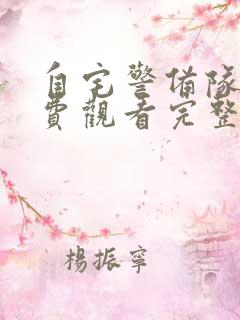 自宅警備隊
費觀看完整
楊振寧